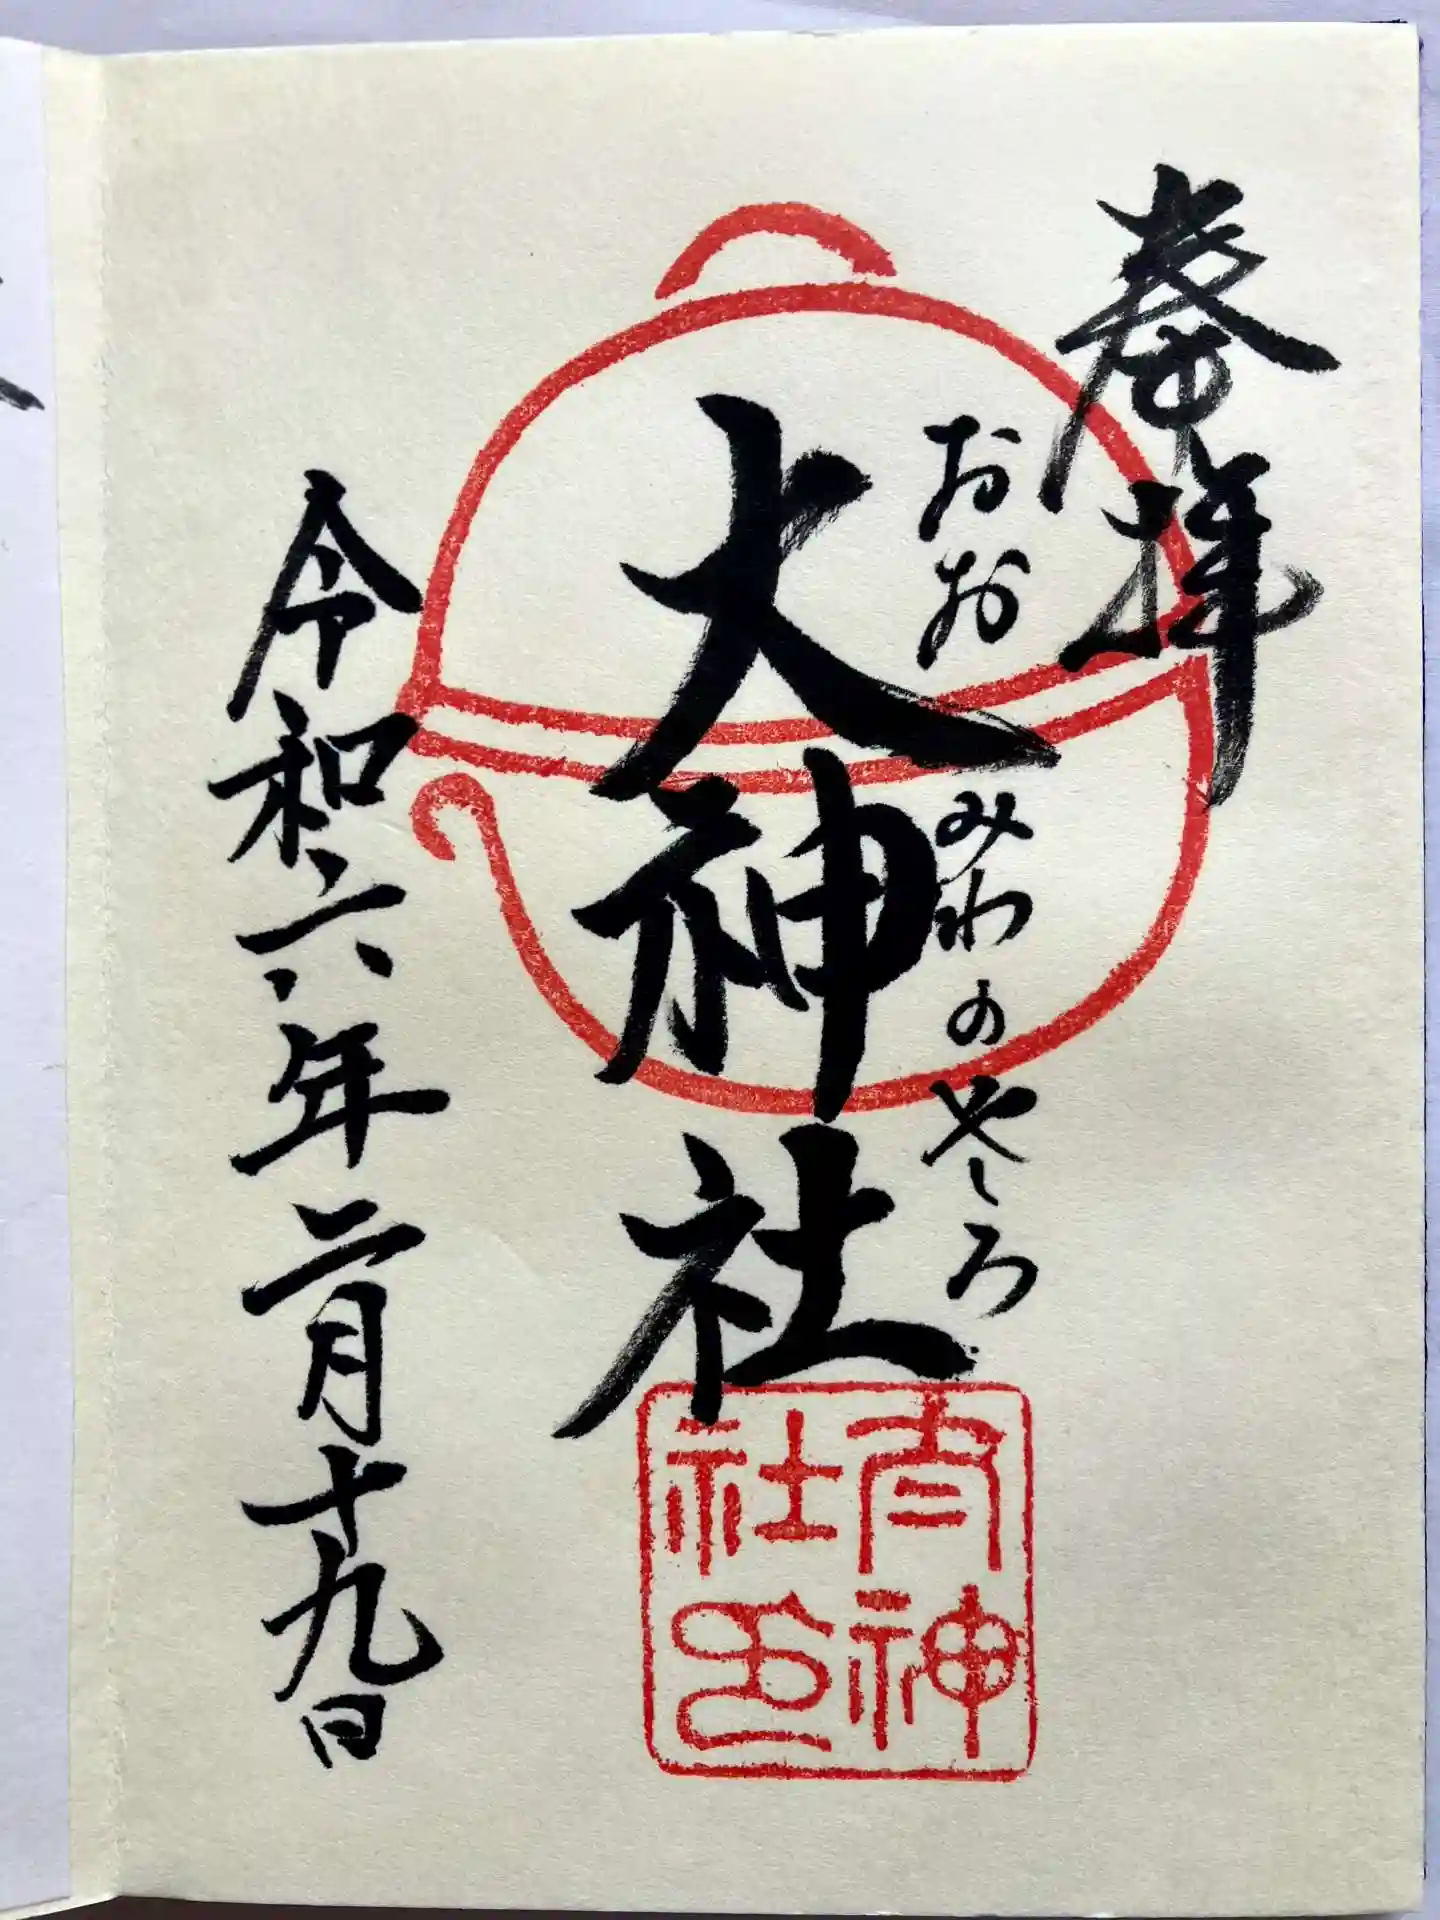 奉拝
おおみわのやしろ
大神社
令和六年二月十九日
大神
社印